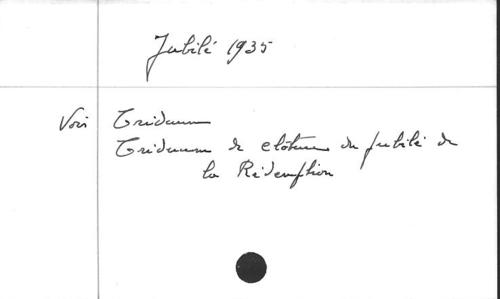 Jubilé 1935
Voir Triduum
Triduum de clôture du Jubilé de
la Rédemption